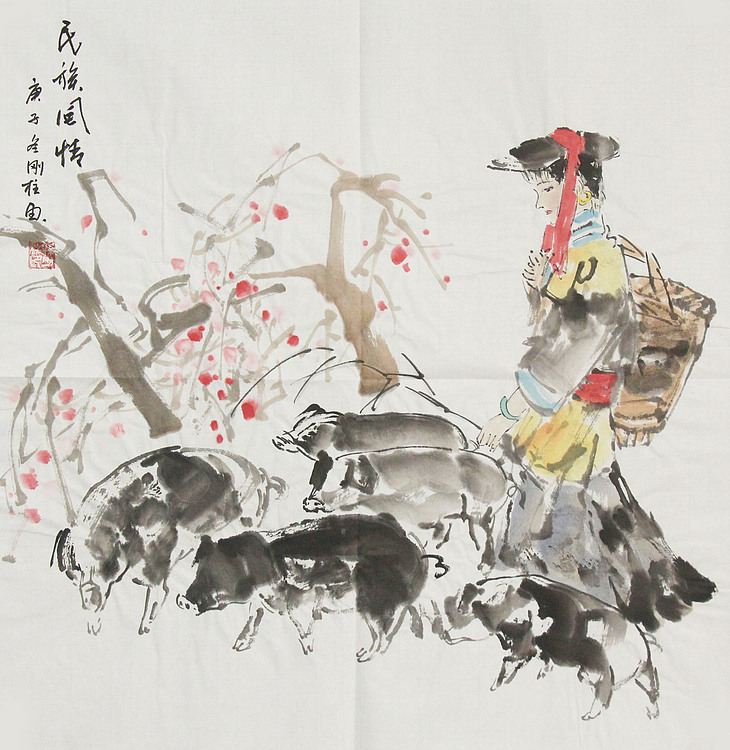 民族风情
庚子冬刚柱画